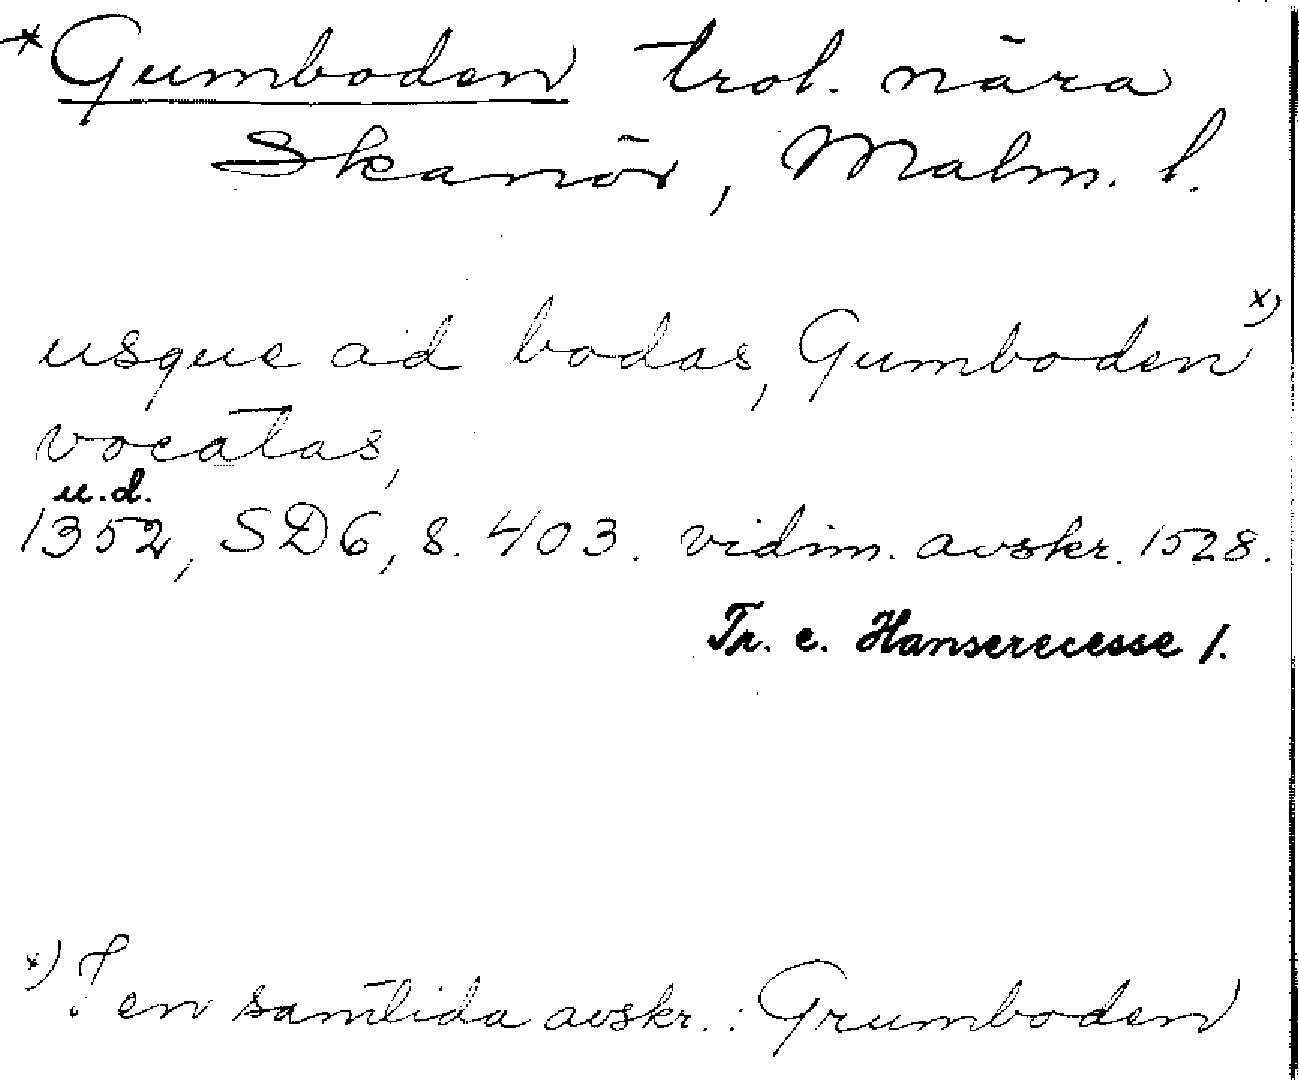 *Gumboden trol. nära
Skanör, Malm. l.
usque ad bodas, Gumboden x)
vocatas,
u.d.
1352, SD6, s. 403. vidim. avskr. 1528.
Tr. e. Hanserecesse 1.
x) I en samtida avskr.: Grumboden